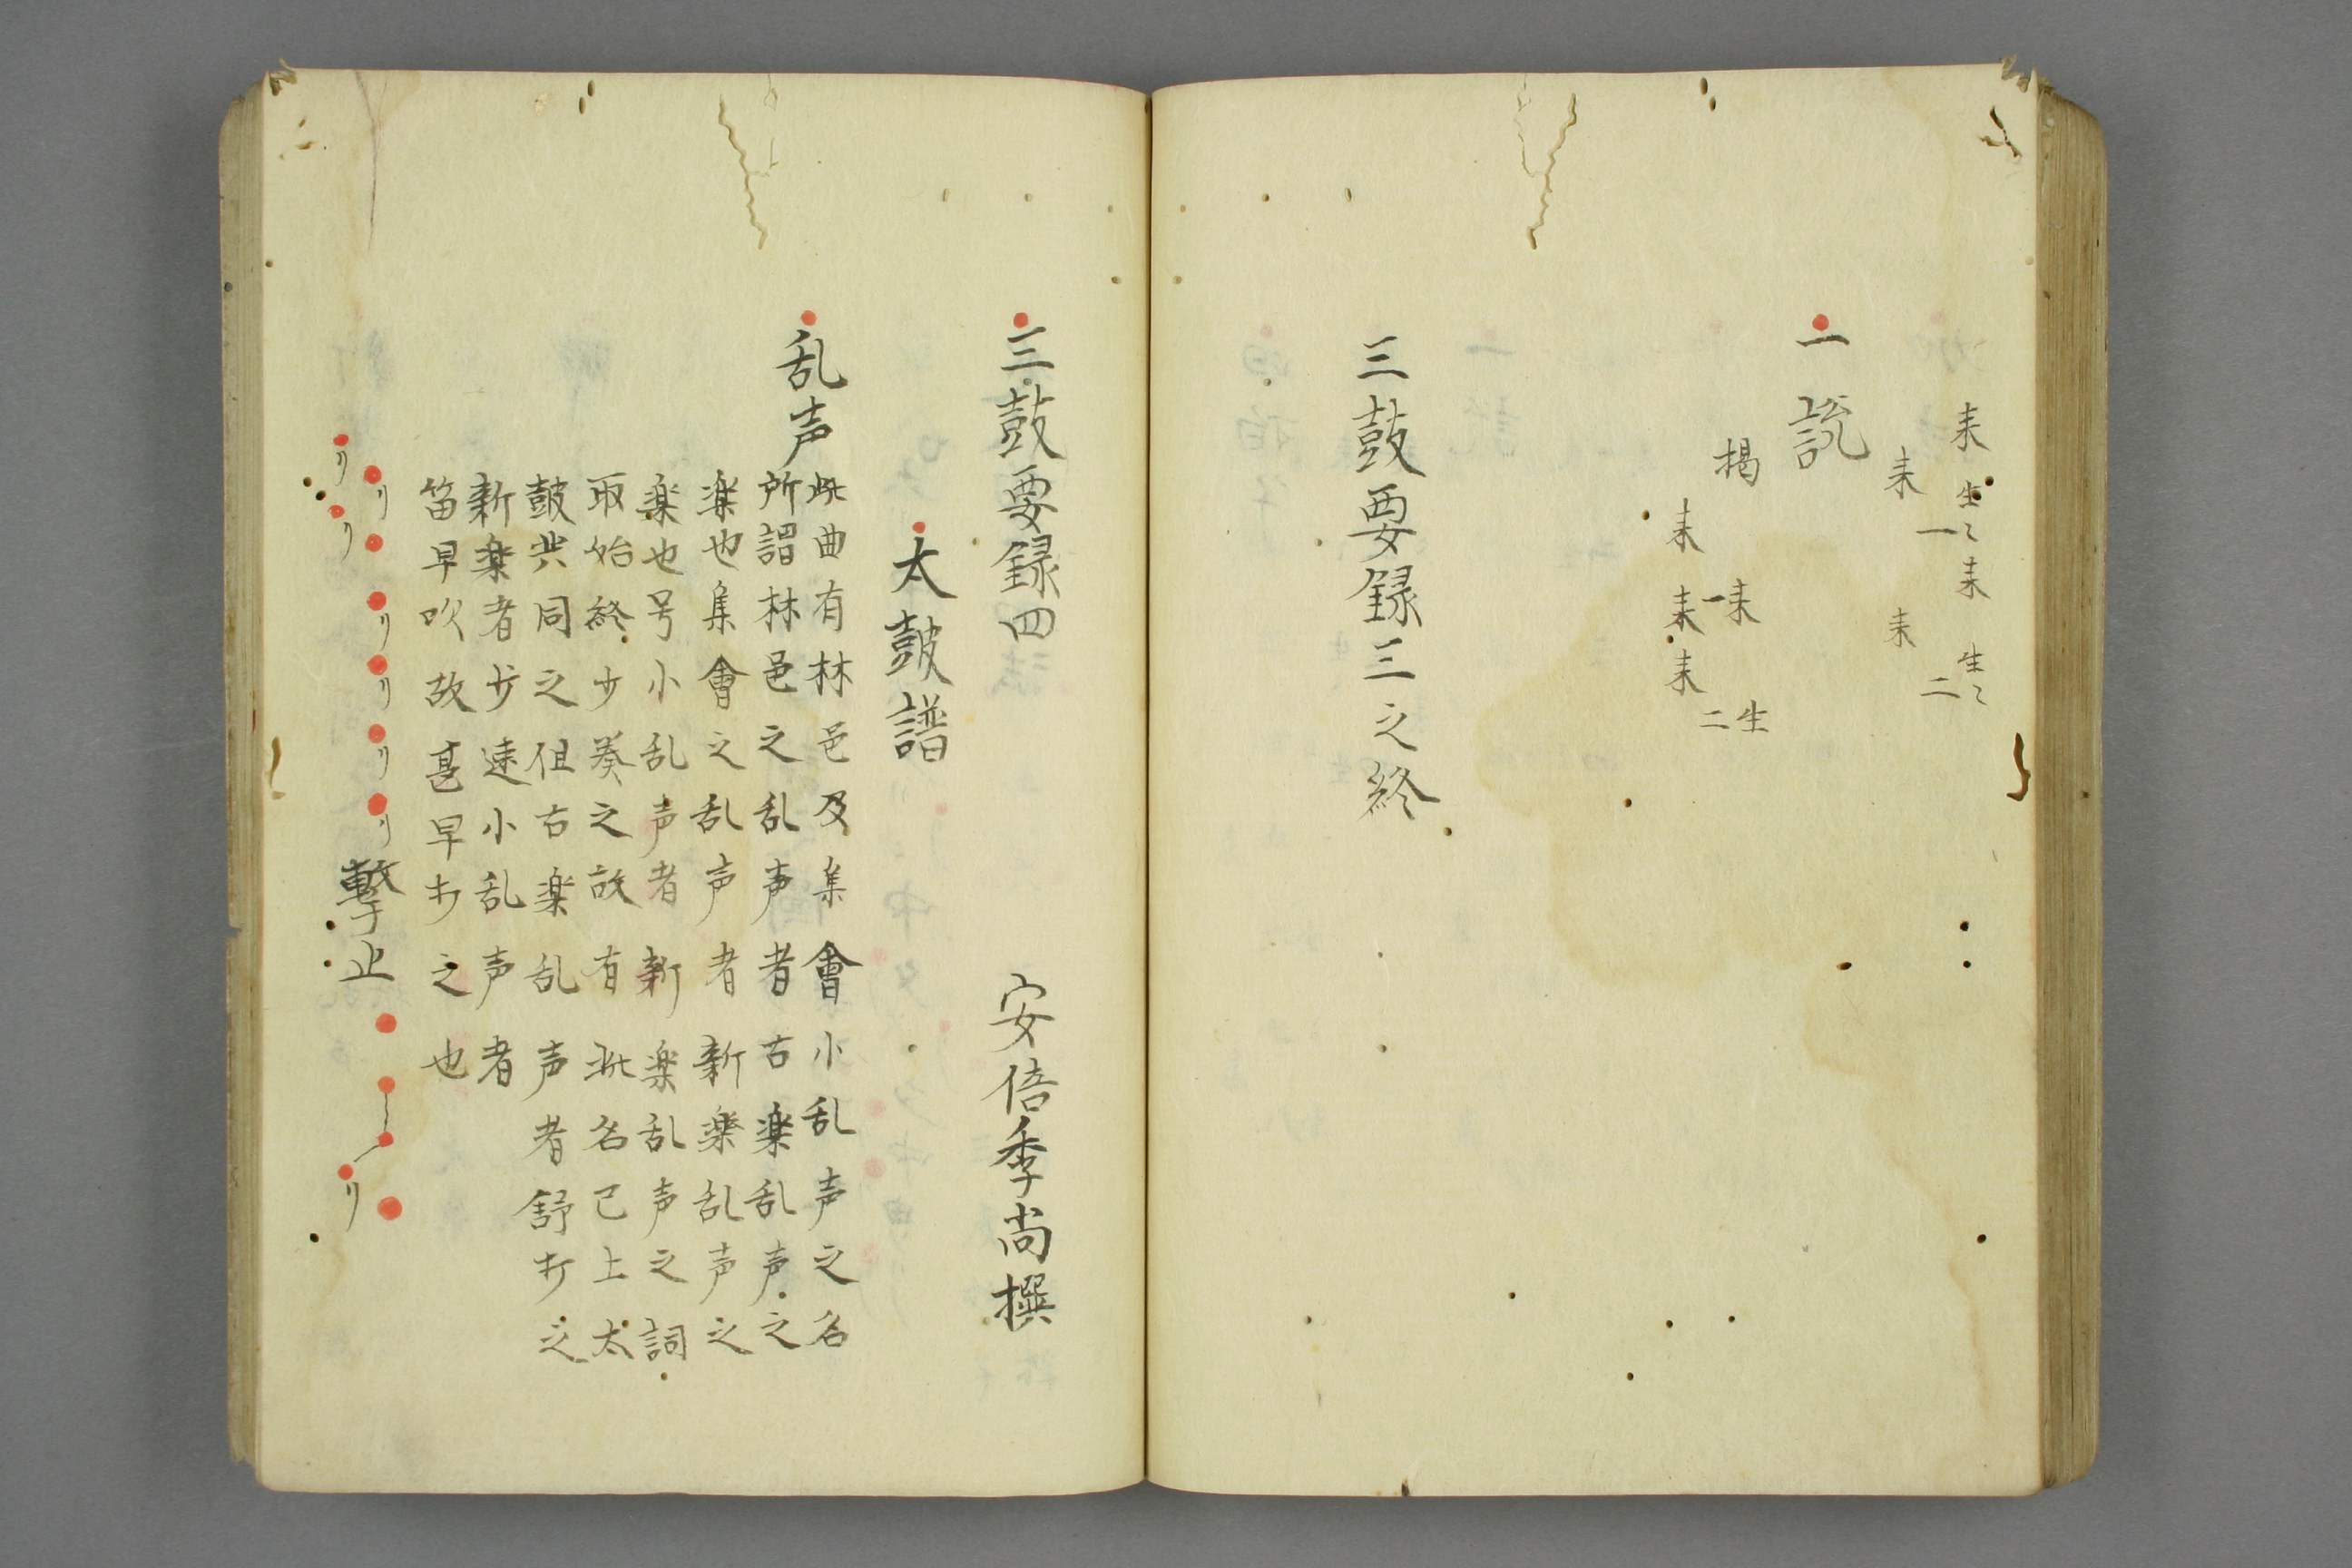 耒 生〻 耒 生〻
一 二
耒 耒
一説
掲 耒 生
一 二
耒 耒 耒
三鼓要録三之終
三鼓要録四 安倍季尚撰
太鼓譜
乱声
此曲有林邑及集會小乱声之名
所謂林邑之乱声者古楽乱声之
楽也集會之乱声者新楽乱声之
楽也号小乱声者新楽乱声之詞
取始終少奏之故有此名已上太
鼓共同之但古楽乱声者舒打之
新楽者歩速小乱声者
笛早吹故甚早打之也
リ リ リ リ リ リ 撃止
リ リ リ